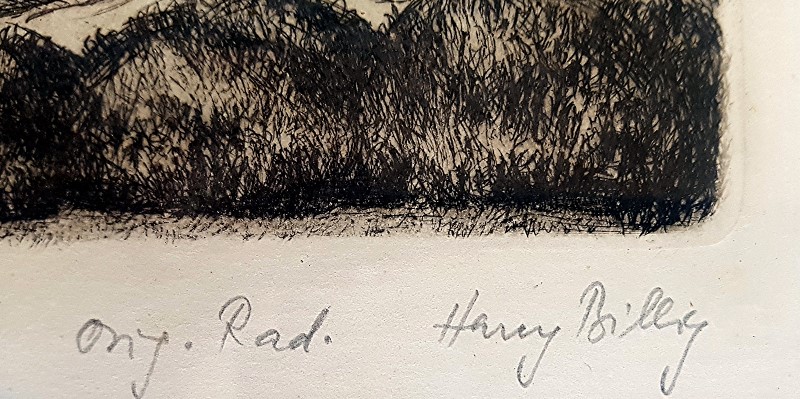 Orig. Rad. Harry Billig